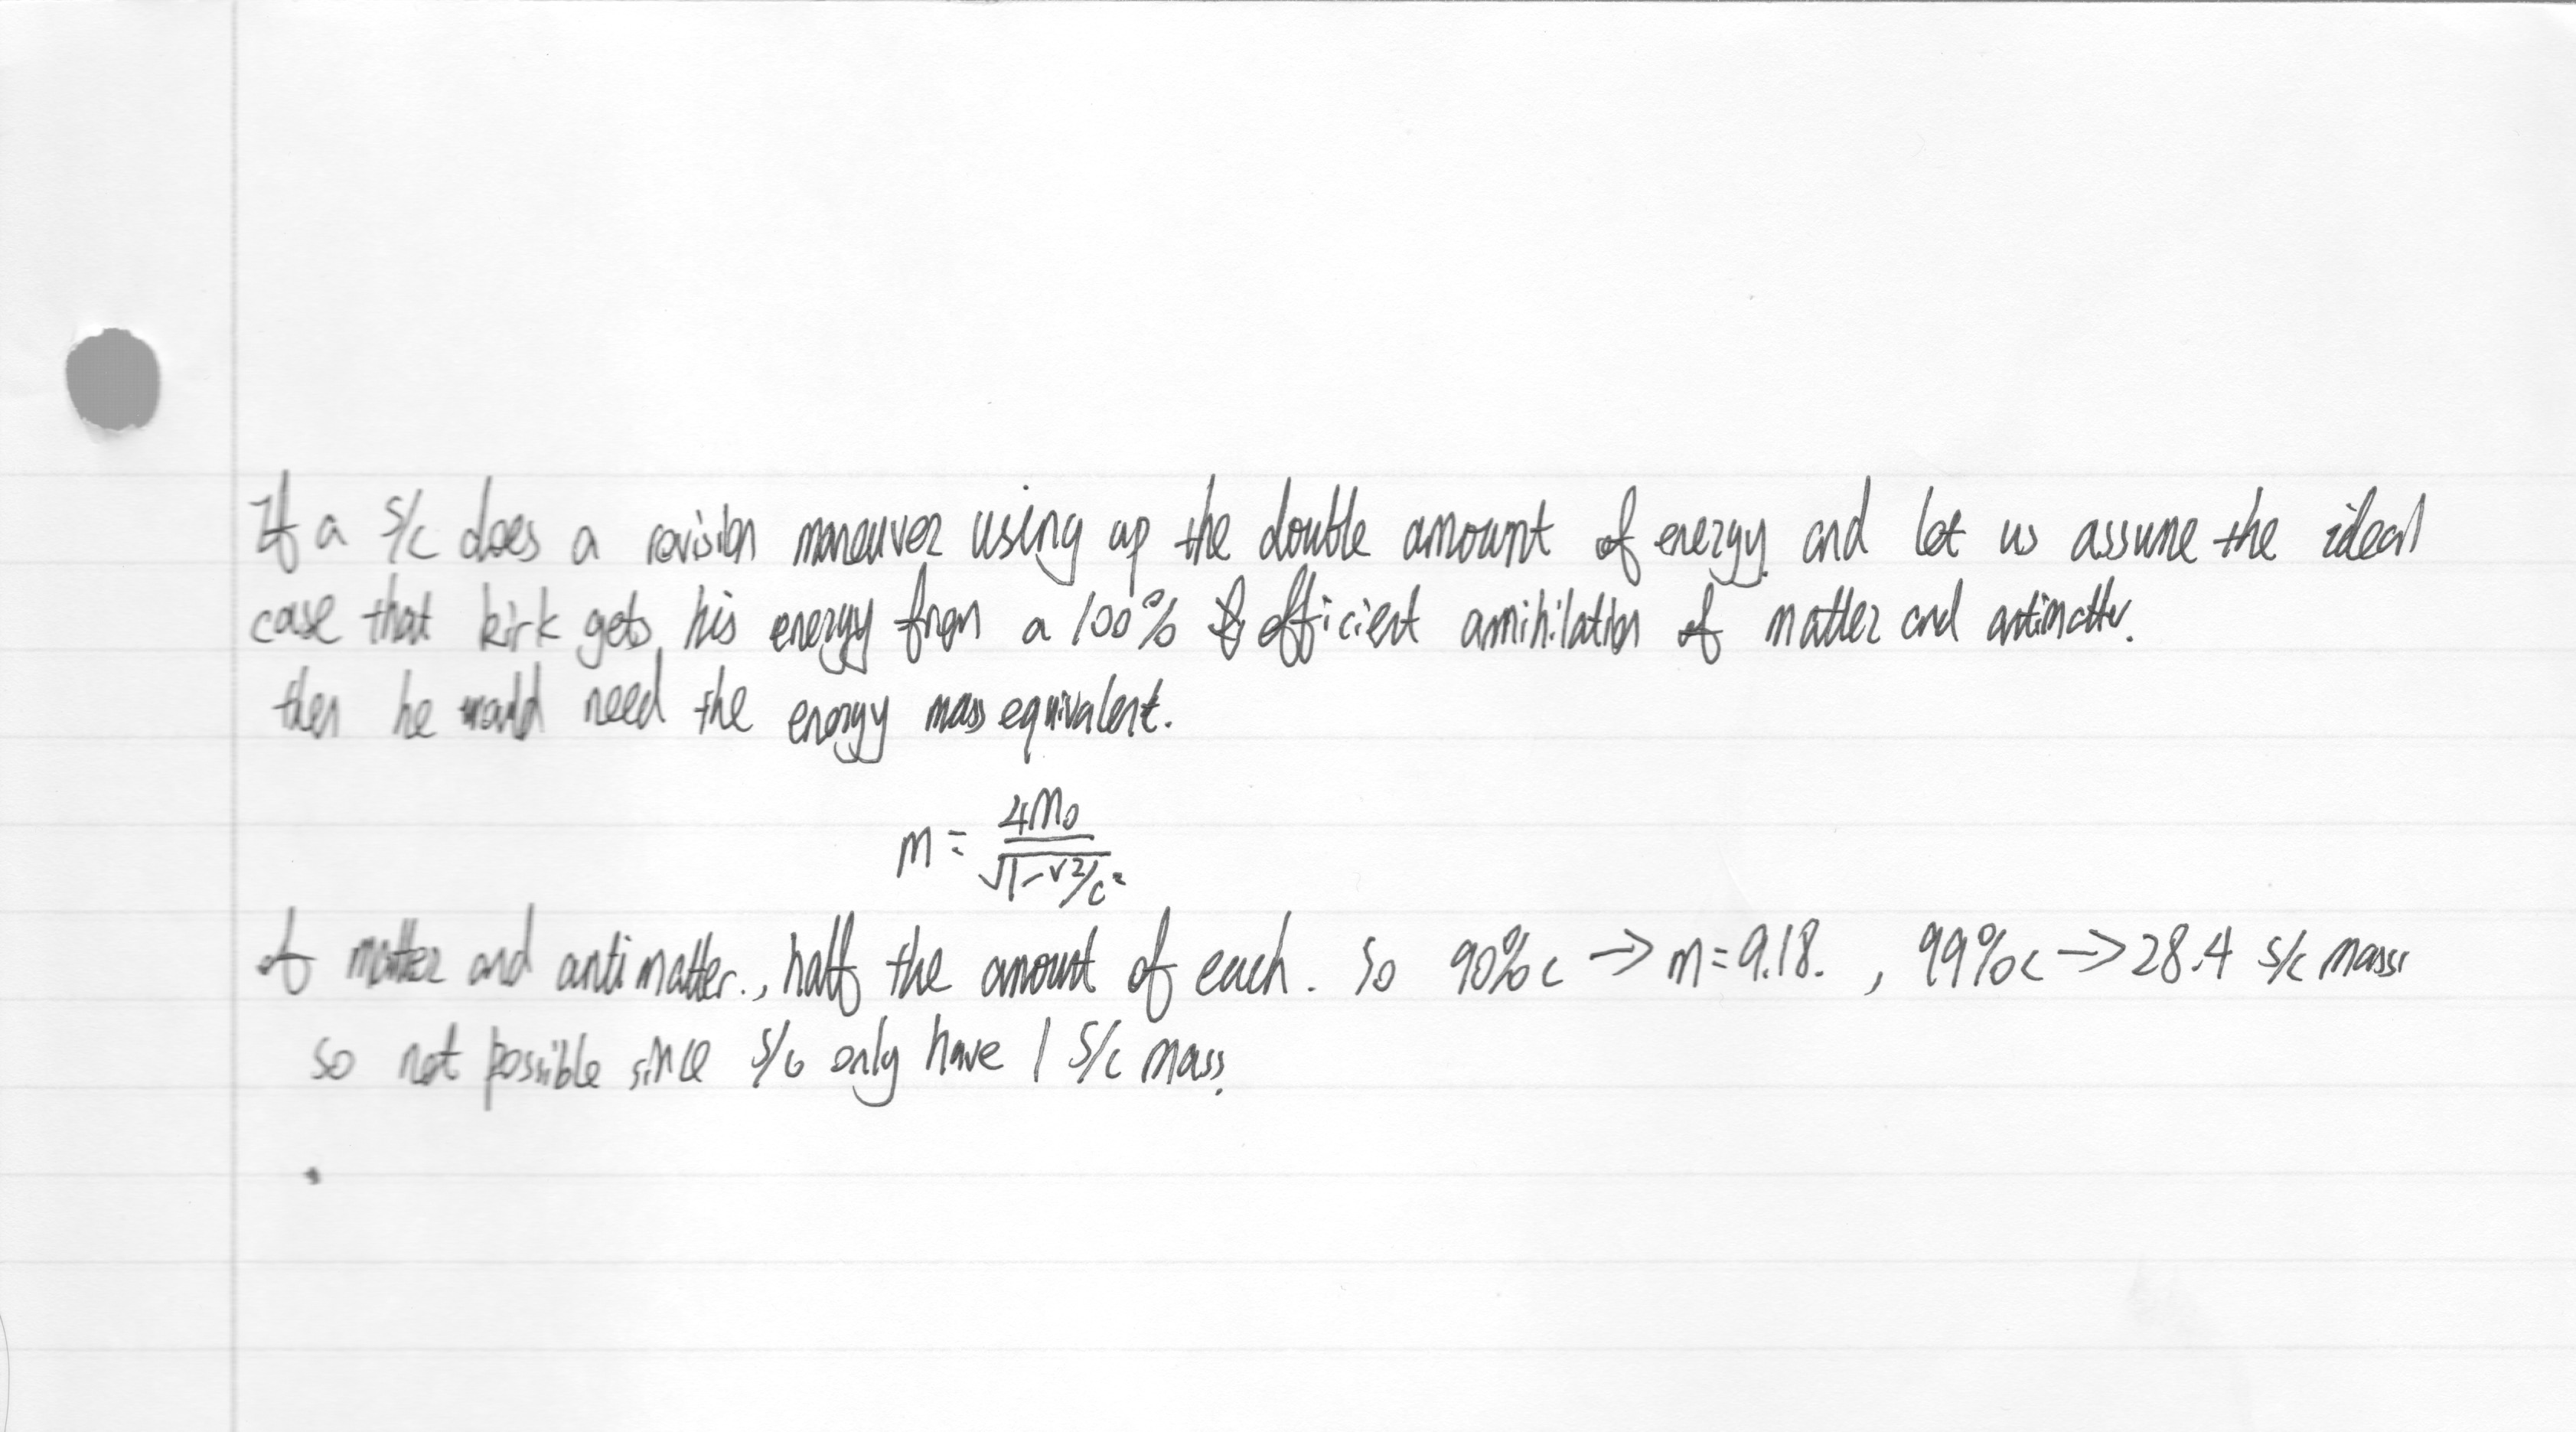 If a s/c does a revision maneuver using up the double amount of energy and let us assume the ideal
case that kirk gets his energy from a 100% efficient annihilation of matter and antimatter.
then he would need the energy mass equivalent.
m = 4m₀ / √1-v²/c²
of matter and antimatter., half the amount of each. So 90%c → m=9.18. , 99%c → 28.4 s/c mass.
so not possible since s/c only have 1 s/c mass.